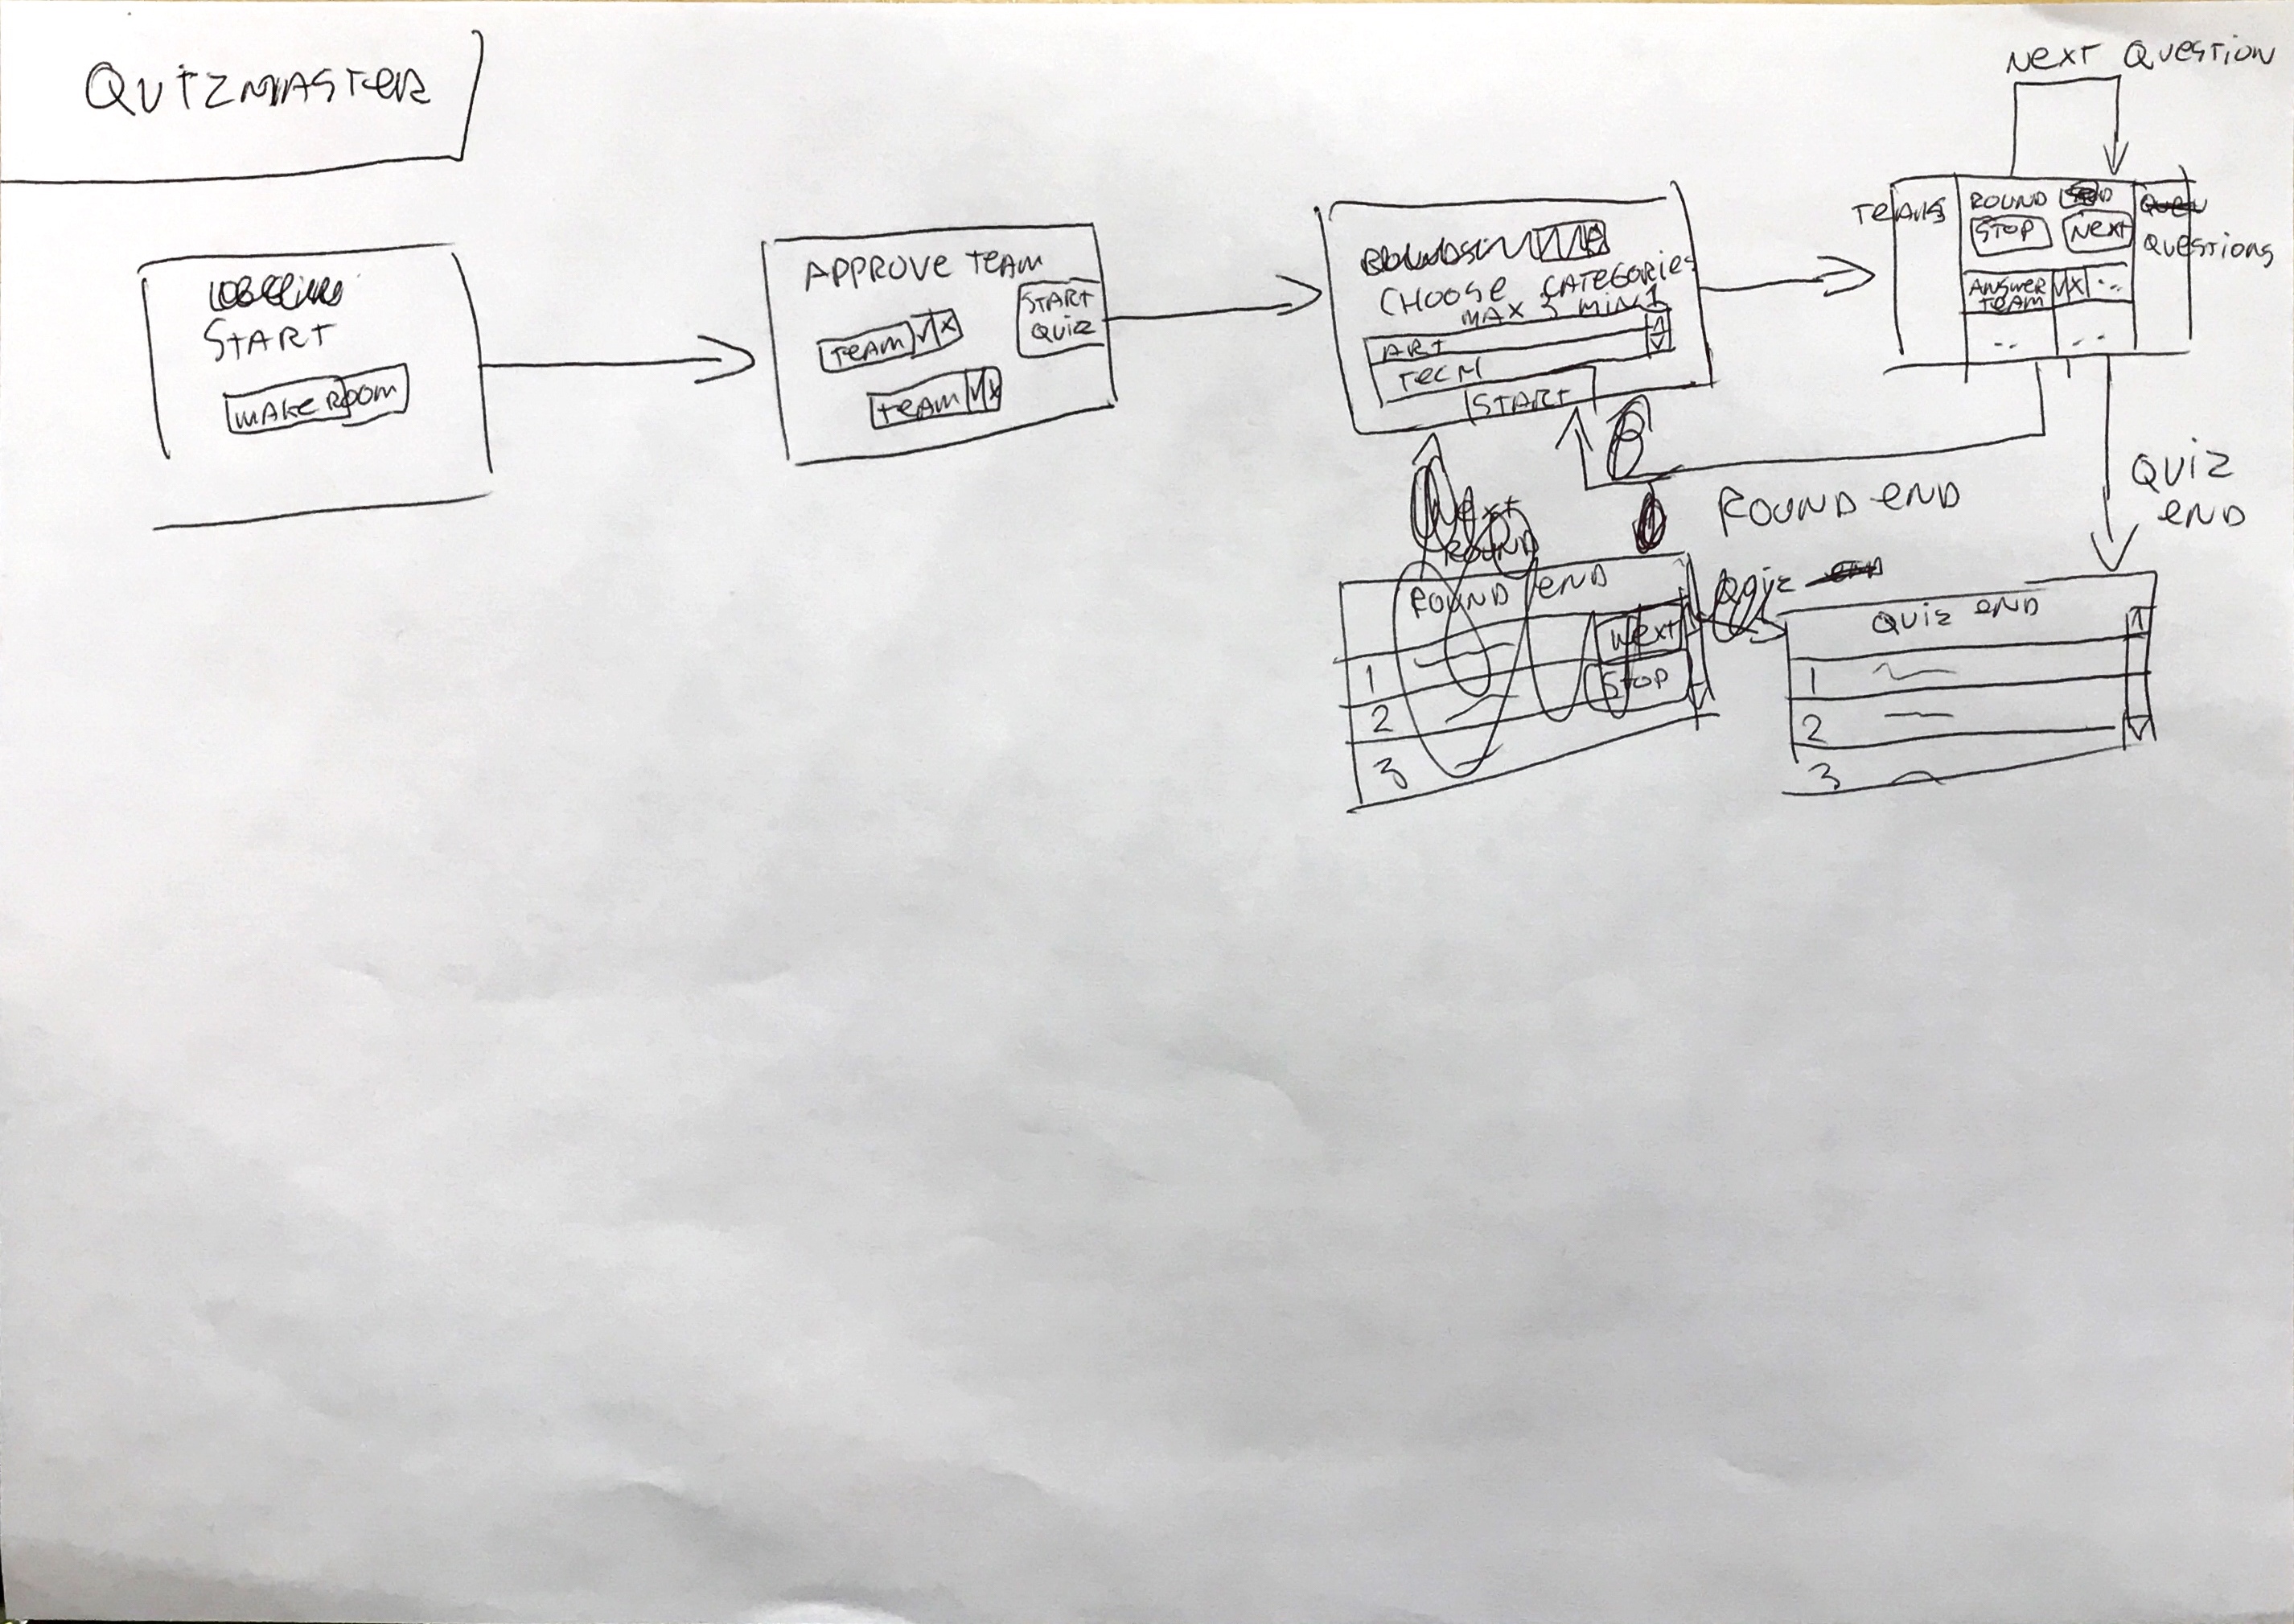 QUIZMASTER
START
MAKE ROOM
APPROVE TEAM
START
QUIZ
TEAM V X
TEAM V X
CHOOSE CATEGORIES
MAX 3 MIN 1
ART
TECH
START
NEXT QUESTION
TEAMS
ROUND
STOP
NEXT
QUESTIONS
ANSWER
TEAM
V X ...
..
..
ROUND END
QUIZ
END
NEXT
ROUND
ROUND END
NEXT
STOP
1
2
3
QUIZ END
QUIZ END
1
2
3